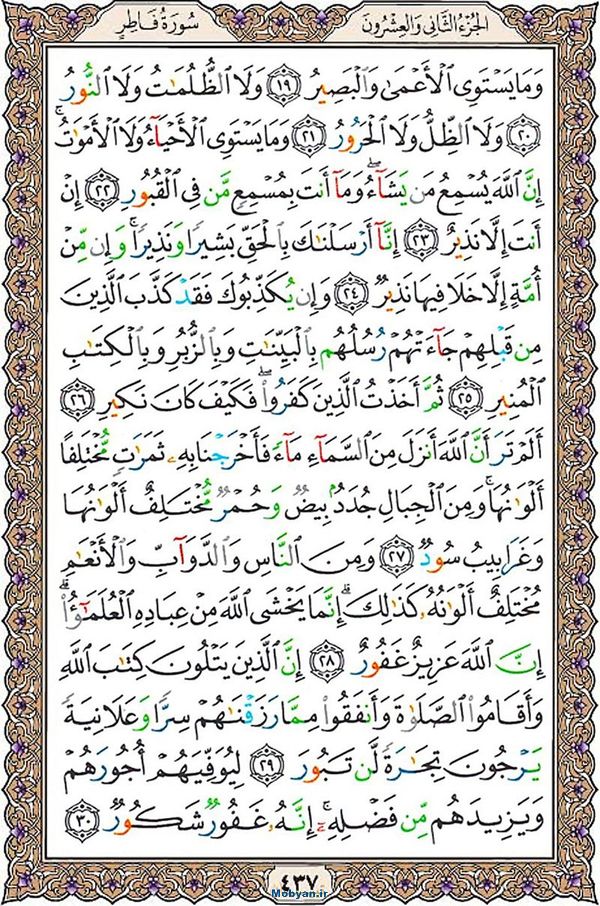 الجُزءُ الثَّانِي وَالعِشْرُونَ
سُورَةُ فَاطِرٍ
وَمَا يَسْتَوِي ٱلْأَعْمَىٰ وَٱلْبَصِيرُ ١٩ وَلَا ٱلظُّلُمَـٰتُ وَلَا ٱلنُّورُ
٢٠ وَلَا ٱلظِّلُّ وَلَا ٱلْحَرُورُ ٢١ وَمَا يَسْتَوِي ٱلْأَحْيَآءُ وَلَا ٱلْأَمْوَٰتُ ۚ
إِنَّ ٱللَّهَ يُسْمِعُ مَن يَشَآءُ ۖ وَمَآ أَنتَ بِمُسْمِعٍ مَّن فِي ٱلْقُبُورِ ٢٢ إِنْ
أَنتَ إِلَّا نَذِيرٌ ٢٣ إِنَّآ أَرْسَلْنَـٰكَ بِٱلْحَقِّ بَشِيرًا وَنَذِيرًا ۚ وَإِن مِّنْ
أُمَّةٍ إِلَّا خَلَا فِيهَا نَذِيرٌ ٢٤ وَإِن يُكَذِّبُوكَ فَقَدْ كَذَّبَ ٱلَّذِينَ
مِن قَبْلِهِمْ جَآءَتْهُمْ رُسُلُهُم بِٱلْبَيِّنَـٰتِ وَبِٱلزُّبُرِ وَبِٱلْكِتَـٰبِ
ٱلْمُنِيرِ ٢٥ ثُمَّ أَخَذْتُ ٱلَّذِينَ كَفَرُوا۟ ۖ فَكَيْفَ كَانَ نَكِيرِ ٢٦
أَلَمْ تَرَ أَنَّ ٱللَّهَ أَنزَلَ مِنَ ٱلسَّمَآءِ مَآءً فَأَخْرَجْنَا بِهِۦ ثَمَرَٰتٍ مُّخْتَلِفًا
أَلْوَٰنُهَا ۚ وَمِنَ ٱلْجِبَالِ جُدَدٌۢ بِيضٌ وَحُمْرٌ مُّخْتَلِفٌ أَلْوَٰنُهَا
وَغَرَابِيبُ سُودٌ ٢٧ وَمِنَ ٱلنَّاسِ وَٱلدَّوَآبِّ وَٱلْأَنْعَـٰمِ
مُخْتَلِفٌ أَلْوَٰنُهُۥ كَذَٰلِكَ ۗ إِنَّمَا يَخْشَى ٱللَّهَ مِنْ عِبَادِهِ ٱلْعُلَمَـٰٓؤُا۟ ۗ
إِنَّ ٱللَّهَ عَزِيزٌ غَفُورٌ ٢٨ إِنَّ ٱلَّذِينَ يَتْلُونَ كِتَـٰبَ ٱللَّهِ
وَأَقَامُوا۟ ٱلصَّلَوٰةَ وَأَنفَقُوا۟ مِمَّا رَزَقْنَـٰهُمْ سِرًّا وَعَلَانِيَةً
يَرْجُونَ تِجَـٰرَةً لَّن تَبُورَ ٢٩ لِيُوَفِّيَهُمْ أُجُورَهُمْ
وَيَزِيدَهُم مِّن فَضْلِهِۦٓ ۚ إِنَّهُۥ غَفُورٌ شَكُورٌ ٣٠
٤٣٧
Mobyan.ir